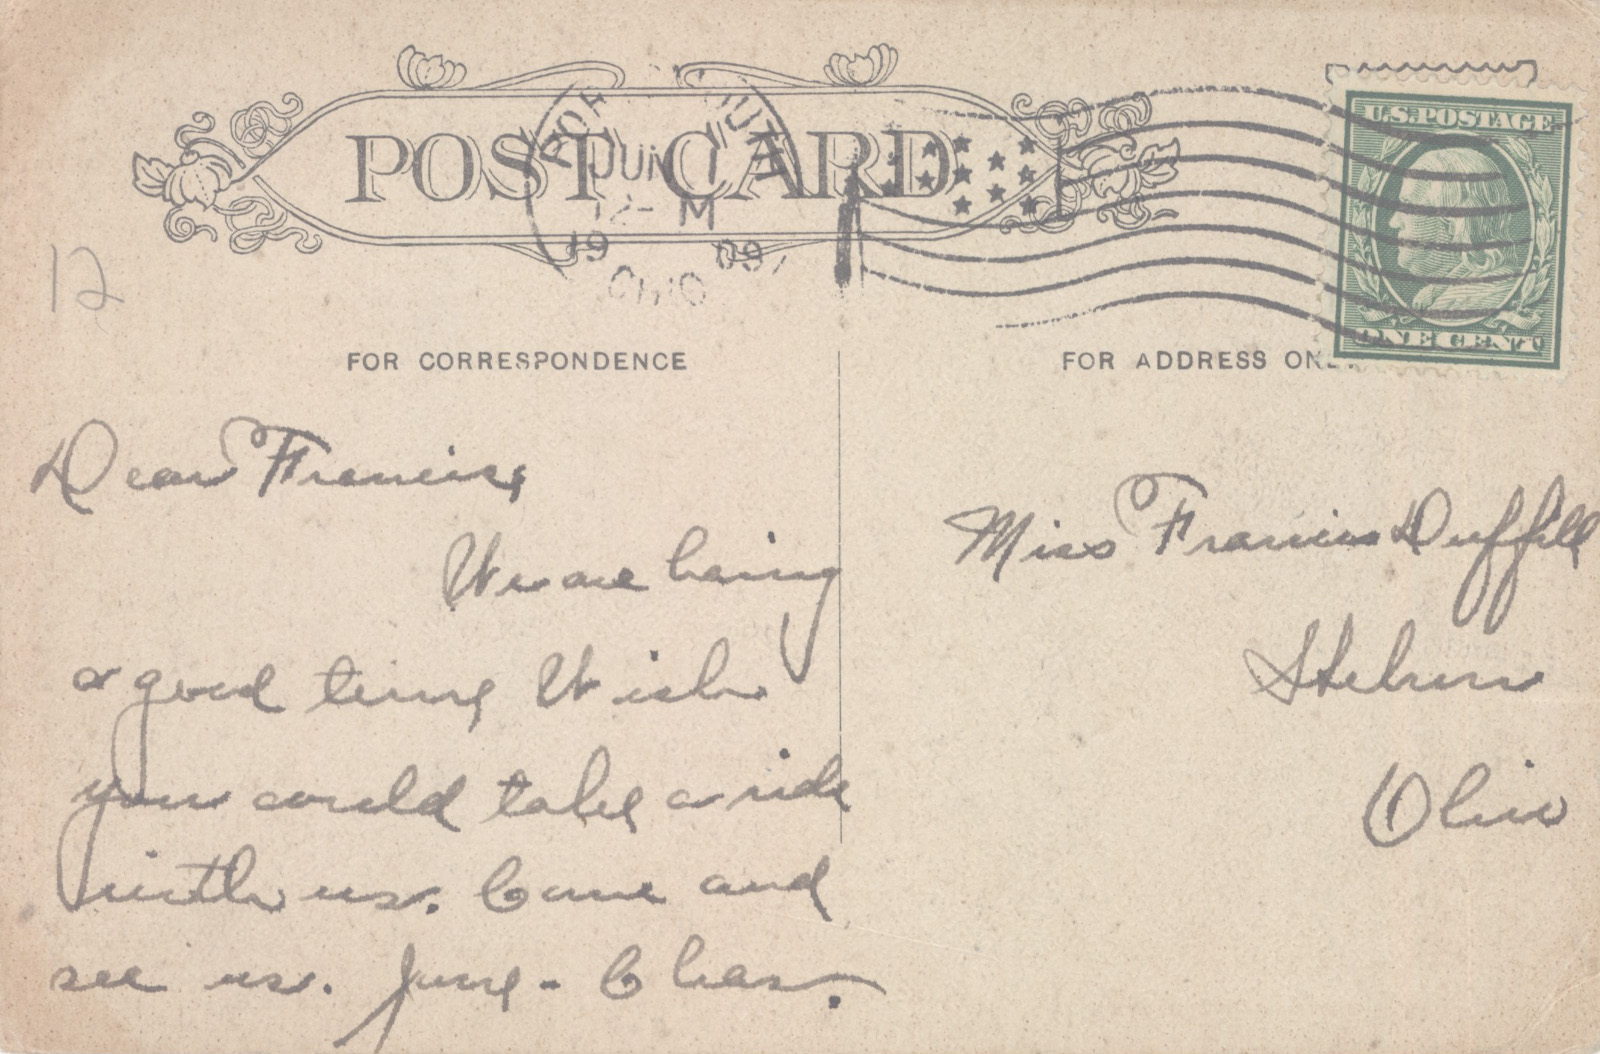 POST CARD
JUN 1
12 - M
19 09
OHIO
U.S. POSTAGE
ONE CENT
12
FOR CORRESPONDENCE
FOR ADDRESS ONLY
Dear Francis,
We are having
a good time, Wish
you could take a ride
with us. Come and
see us. June - Chas.
Miss Francis Duffill
Ohio